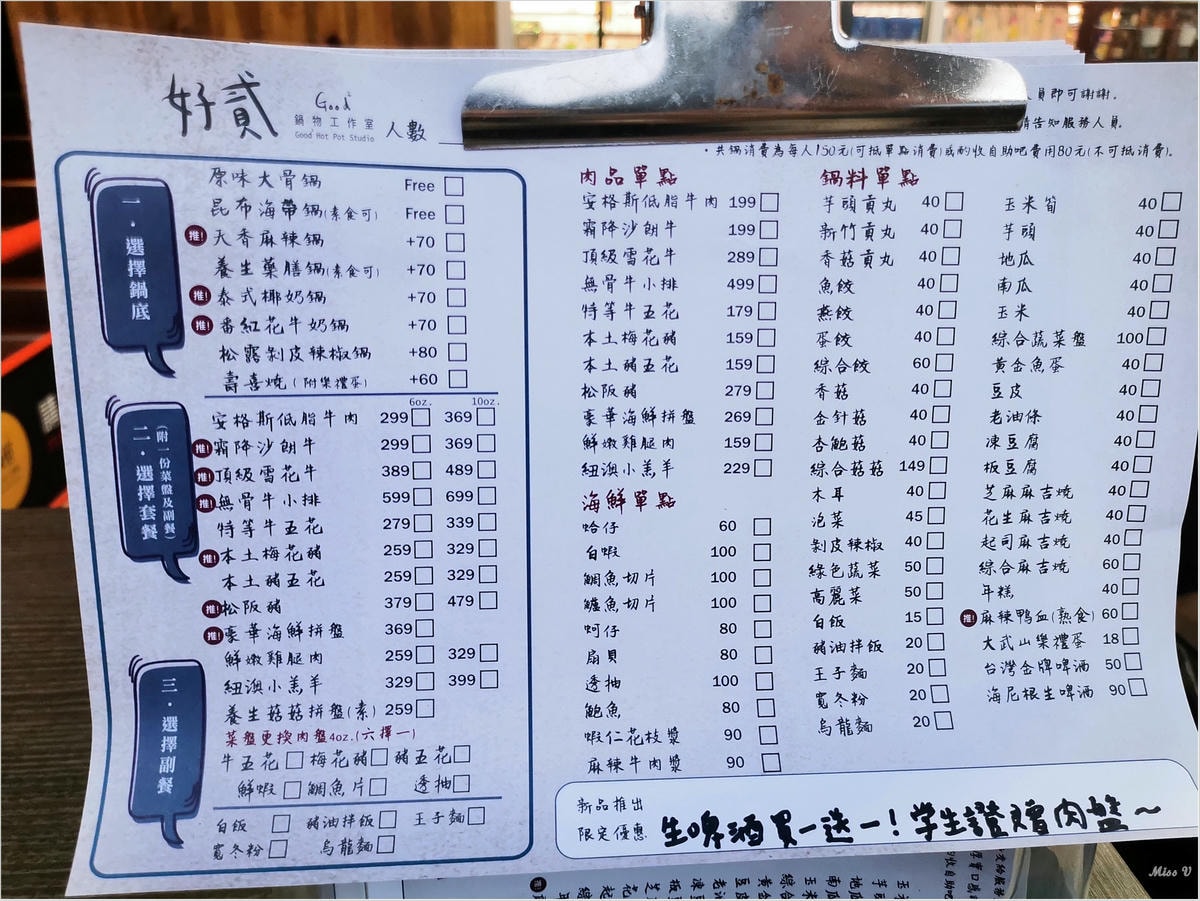 好貳
Good
鍋物工作室
Good Hot Pot Studio
人數
人員即可謝謝。
請告知服務人員。
・共鍋消費為每人150元(可抵單點消費)或酌收自助吧費用80元(不可抵消費)。
一・選擇鍋底
原味大骨鍋 Free
昆布海帶鍋(素食可) Free
推! 天香麻辣鍋 +70
養生藥膳鍋(素食可) +70
推! 泰式椰奶鍋 +70
推! 番紅花牛奶鍋 +70
松露剝皮辣椒鍋 +80
壽喜燒(附樂禮蛋) +60
二・選擇套餐
(附一份菜盤及副餐)
6oz. 10oz.
安格斯低脂牛肉 299 369
推! 霜降沙朗牛 299 369
推! 頂級雪花牛 389 489
推! 無骨牛小排 599 699
特等牛五花 279 339
推! 本土梅花豬 259 329
本土豬五花 259 329
推! 松阪豬 379 479
推! 豪華海鮮拼盤 369
鮮嫩雞腿肉 259 329
紐澳小羔羊 329 399
養生菇菇拼盤(素) 259
菜盤更換肉盤4oz.(六擇一)
牛五花 梅花豬 豬五花
鮮蝦 鯛魚片 透抽
三・選擇副餐
白飯 豬油拌飯 王子麵
寬冬粉 烏龍麵
肉品單點
安格斯低脂牛肉 199
霜降沙朗牛 199
頂級雪花牛 289
無骨牛小排 499
特等牛五花 179
本土梅花豬 159
本土豬五花 159
松阪豬 279
豪華海鮮拼盤 269
鮮嫩雞腿肉 159
紐澳小羔羊 229
海鮮單點
蛤仔 60
白蝦 100
鯛魚切片 100
鱸魚切片 100
蚵仔 80
扇貝 80
透抽 100
鮑魚 80
蝦仁花枝漿 90
麻辣牛肉漿 90
鍋料單點
芋頭貢丸 40
新竹貢丸 40
香菇貢丸 40
魚餃 40
燕餃 40
蛋餃 40
綜合餃 60
香菇 40
金針菇 40
杏鮑菇 40
綜合菇菇 149
木耳 40
泡菜 45
剝皮辣椒 40
綠色蔬菜 50
高麗菜 50
白飯 15
豬油拌飯 20
王子麵 20
寬冬粉 20
烏龍麵 20
玉米筍 40
芋頭 40
地瓜 40
南瓜 40
玉米 40
綜合蔬菜盤 100
黃金魚蛋 40
豆皮 40
老油條 40
凍豆腐 40
板豆腐 40
芝麻麻吉燒 40
花生麻吉燒 40
起司麻吉燒 40
綜合麻吉燒 60
年糕 40
推! 麻辣鴨血(熟食) 60
大武山樂禮蛋 18
台灣金牌啤酒 50
海尼根生啤酒 90
新品推出
限定優惠
生啤酒買一送一!學生證贈肉盤~
Miss V